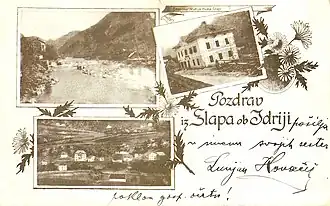 Pozdrav
iz Slapa ob Idriji
pošilja
v imenu svojih sester
Lucijan Kovačič
poklon gosp. očetu!